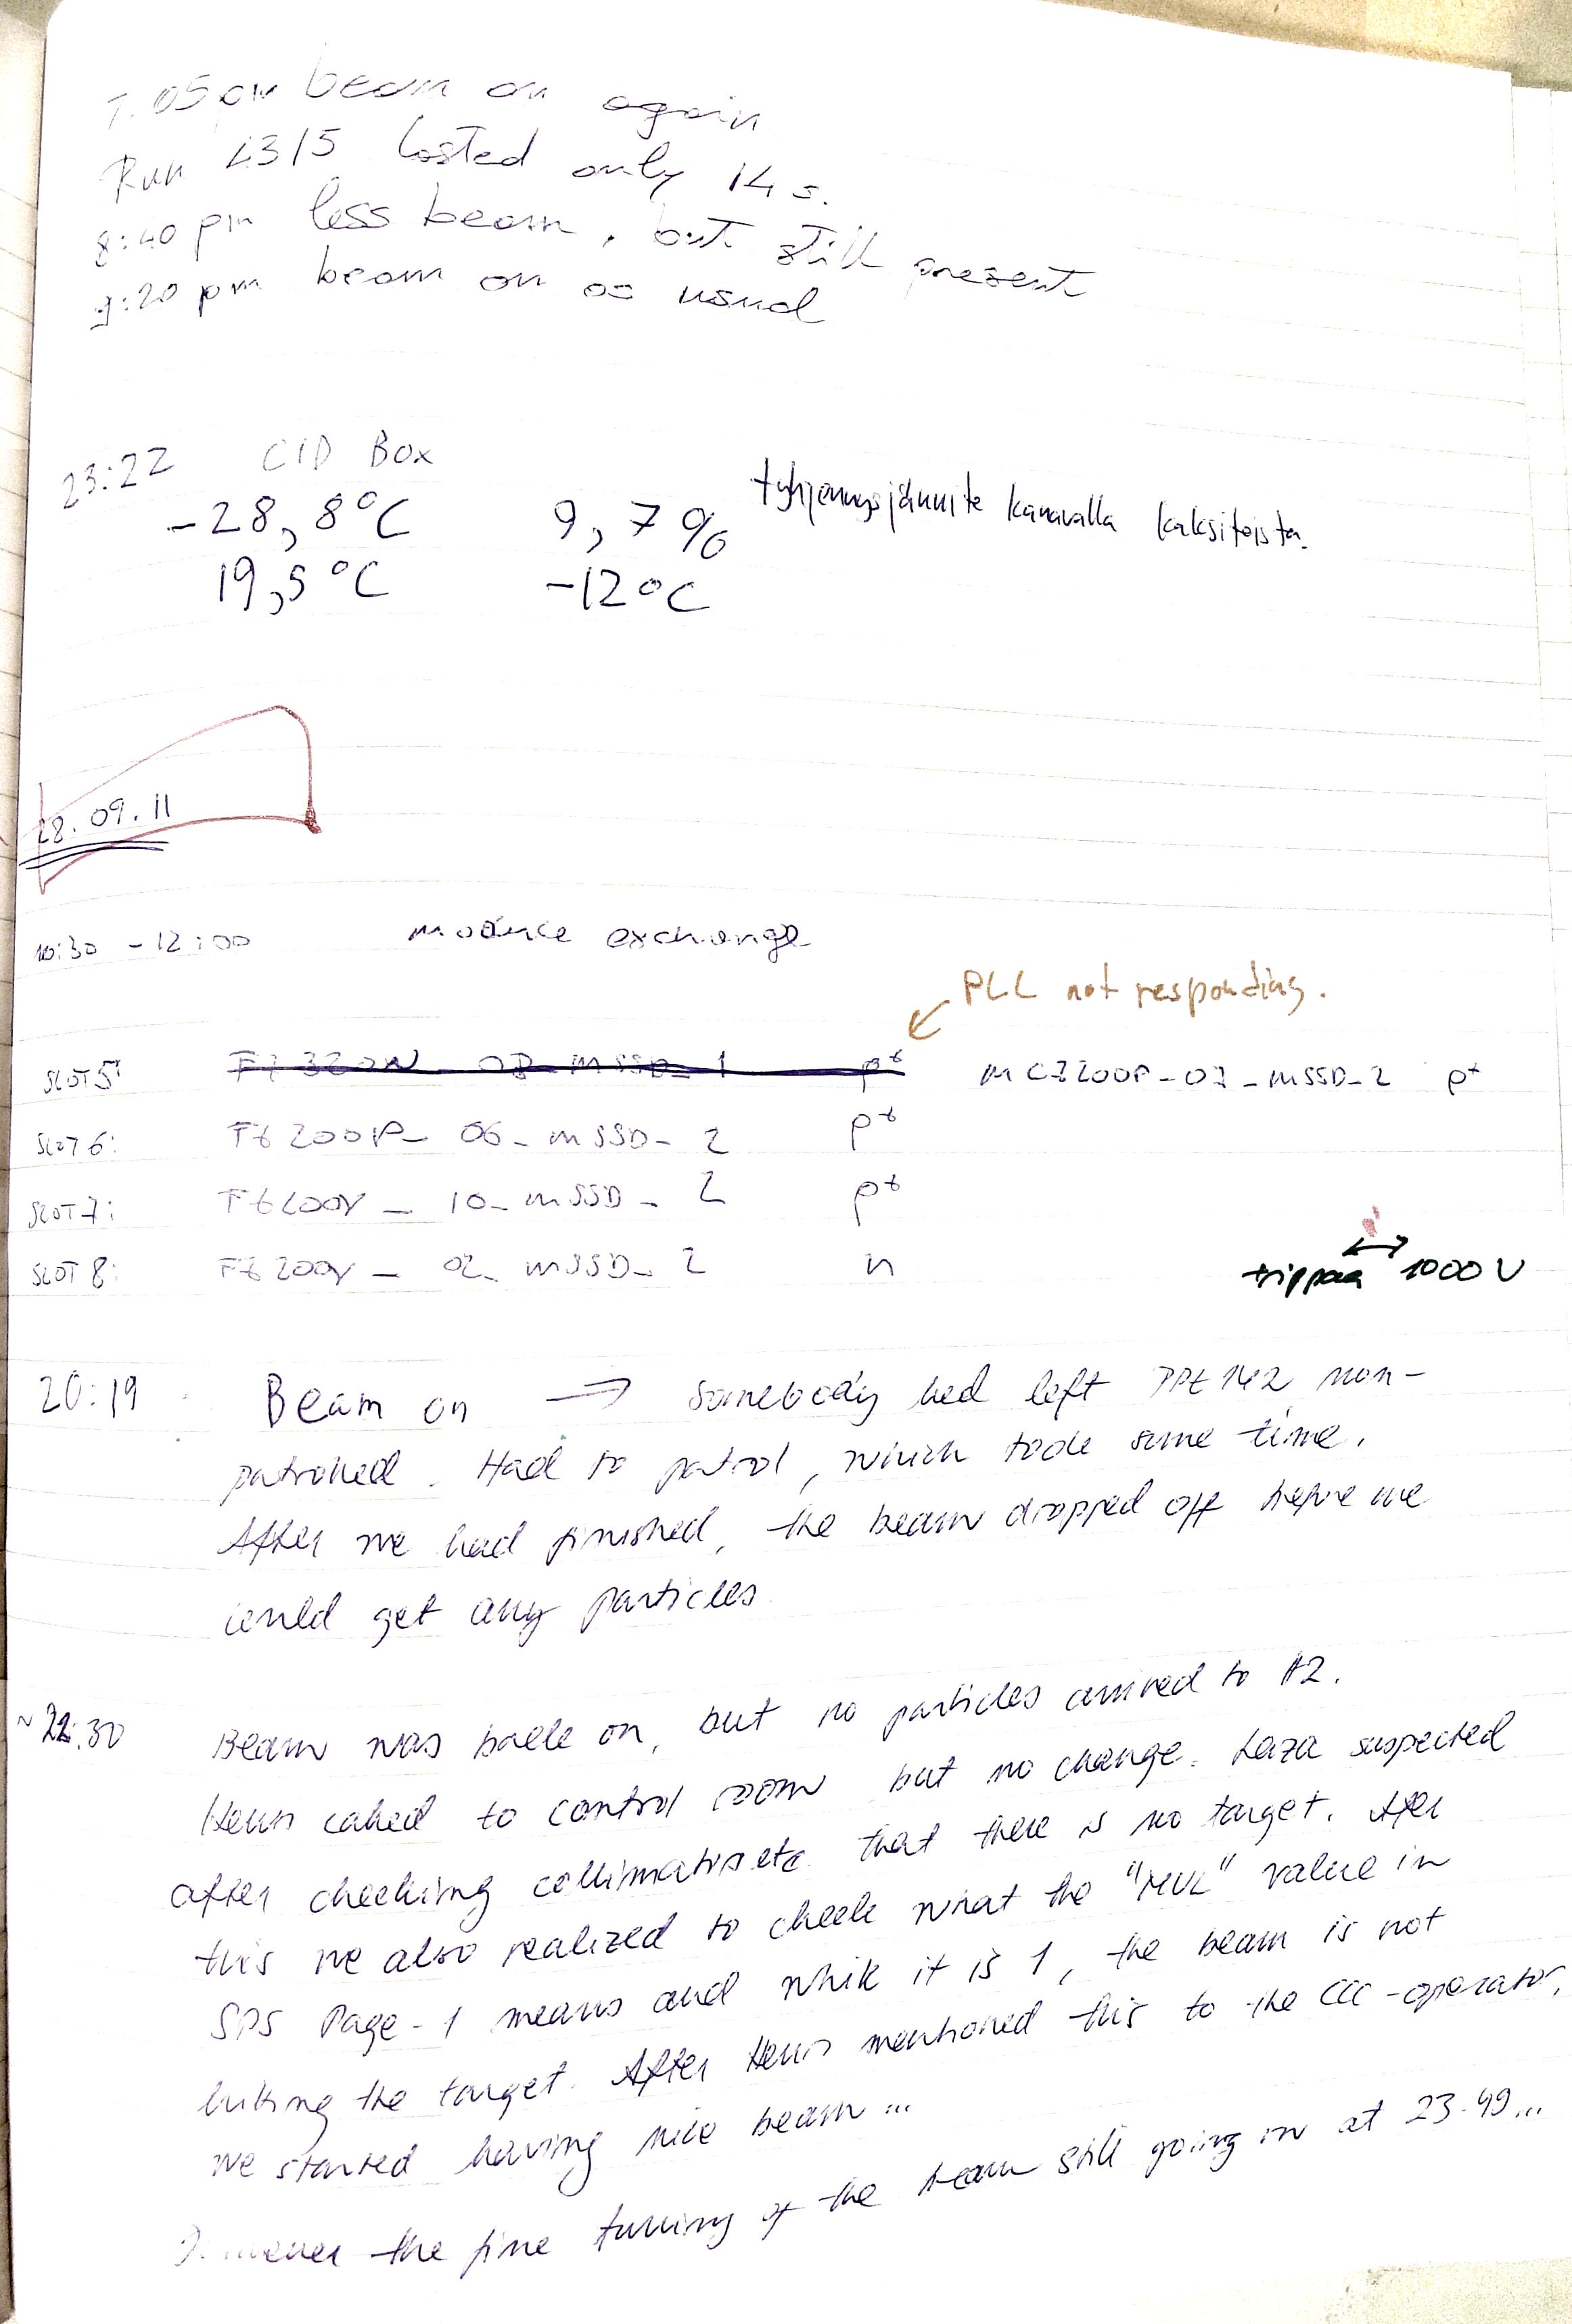 7.05 pm beam on again
Run 2315 lasted only 14 s.
8:40 pm less beam, but still present
9:20 pm beam on as usual
23:22 CID Box
-28,8°C 9,7% tyhjennysjännite kanavalla kaksitoista.
19,5°C -12°C
28.09.11
10:30 - 12:00 module exchange
PLL not responding.
SLOT 5: p+ MCZ200P-07-MSSD-2 p+
SLOT 6: FZ200P-06-MSSD-2 p+
SLOT 7: FZ200Y-10-MSSD-2 p+
SLOT 8: FZ200Y-02-MSSD-2 n
trippaa 1000 V
20:19 Beam on → somebody had left PPE142 non-
patrolled. Had to patrol, which took some time.
After we had finished, the beam dropped off before we
could get any particles
~22:30 Beam was back on, but no particles arrived to H2.
Henri called to control room but no change. Laza suspected
after checking collimators etc. that there is no target. After
this we also realized to check what the "MUL" value in
SPS Page-1 means and while it is 1, the beam is not
hitting the target. After Henri mentioned this to the CCC-operator,
we started having nice beam...
However the fine tuning of the beam still going on at 23.49...